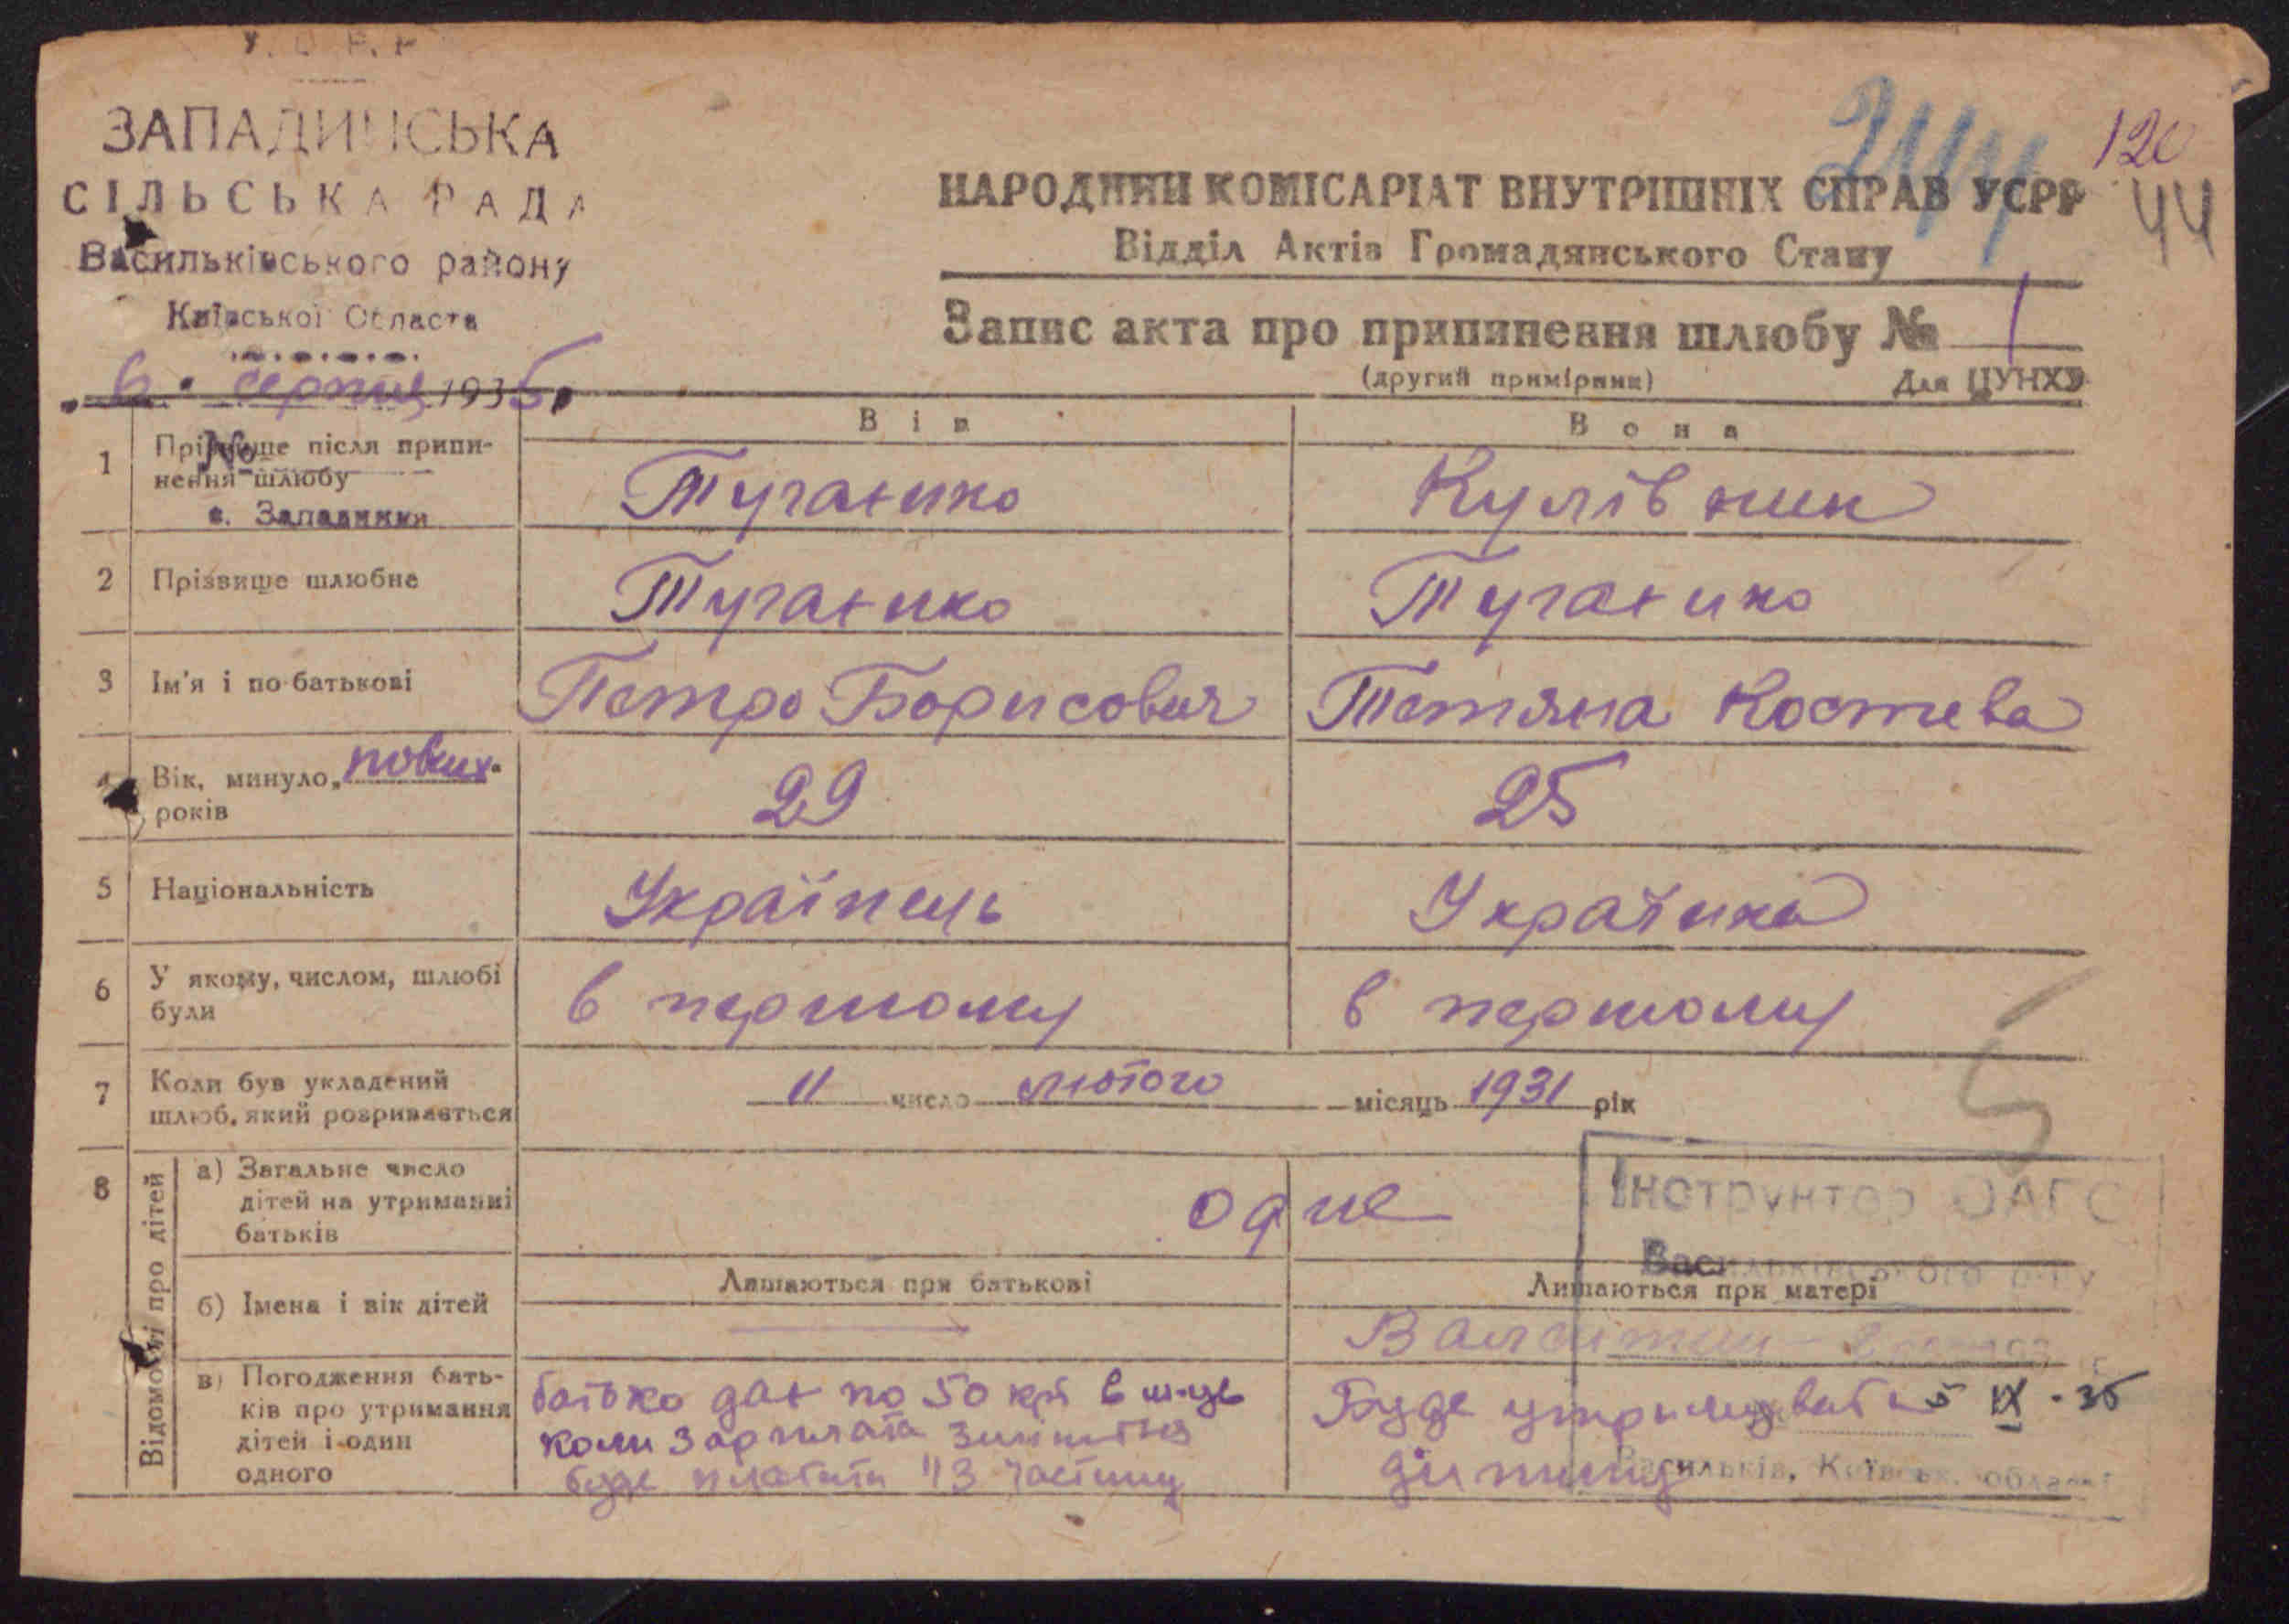 У. С. Р. Р.
ЗАПАДИНСЬКА
СІЛЬСЬКА РАДА
Васильківського району
Київської Області
6 серпня 1935
№
с. Западинки
244
120
44
НАРОДНИЙ КОМІСАРІАТ ВНУТРІШНІХ СПРАВ УСРР
Відділ Актів Громадянського Стану
Запис акта про припинення шлюбу № 1
(другий примірник) Для ЦУНХУ
Він Вона
1 Прізвище після припинення шлюбу Туганико Кулівник
2 Прізвище шлюбне Туганико Туганико
3 Ім'я і по-батькові Петро Борисович Тетяна Костева
4 Вік, минуло „повних“ років 29 25
5 Національність Українець Українка
6 У якому, числом, шлюбі були в першому в першому
7 Коли був укладений шлюб, який розривається 11 число лютого місяць 1931 рік
5
8 Відомості про дітей
а) Загальне число дітей на утриманні батьків одне
Інструктор ЗАГС
Васильківського р-ну
б) Імена і вік дітей
Лишаються при батькові Лишаються при матері
в) Погодження батьків про утримання дітей і один одного
батько дає по 50 крб в м-ць
коли зарплата
буде платити 1/3 частину
Буде утримувати
дитину
5 IX - 35
Васильків, Київськ. області